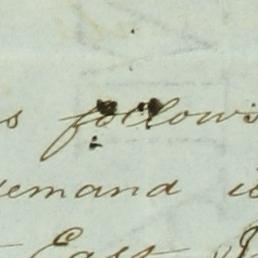 s follows
emand is
East